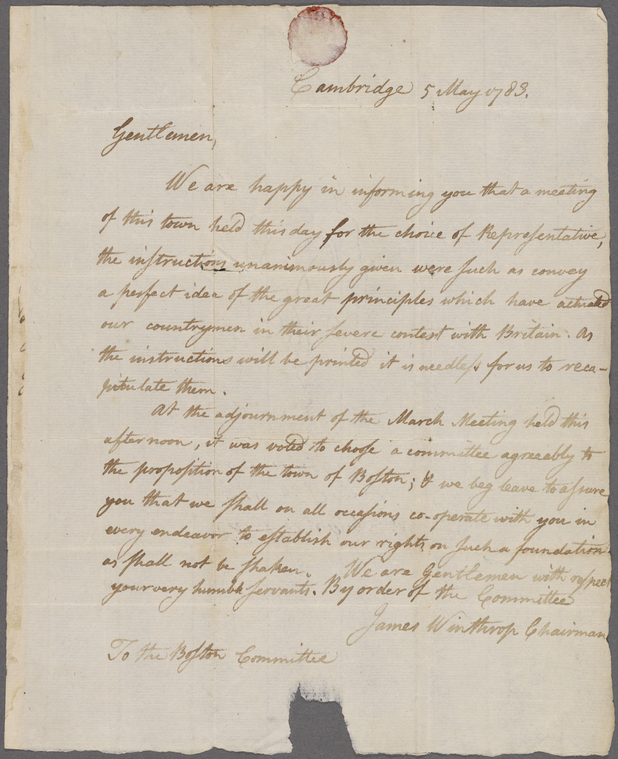 Cambridge 5 May 1783.
Gentlemen,
We are happy in informing you that a meeting
of this town held this day for the choice of Representative,
the instructions unanimously given were such as convey
a perfect idea of the great principles which have actuated
our countrymen in their severe contest with Britain. As
the instructions will be printed it is needless for us to reca-
pitulate them.
At the adjournment of the March Meeting held this
afternoon, it was voted to choose a committee agreeably to
the proposition of the town of Boston; & we beg leave to assure
you that we shall on all occasions co-operate with you in
every endeavor to establish our rights on such a foundation
as shall not be shaken. We are Gentlemen with respect
your very humble servants. By order of the Committee
James Winthrop Chairman
To the Boston Committee